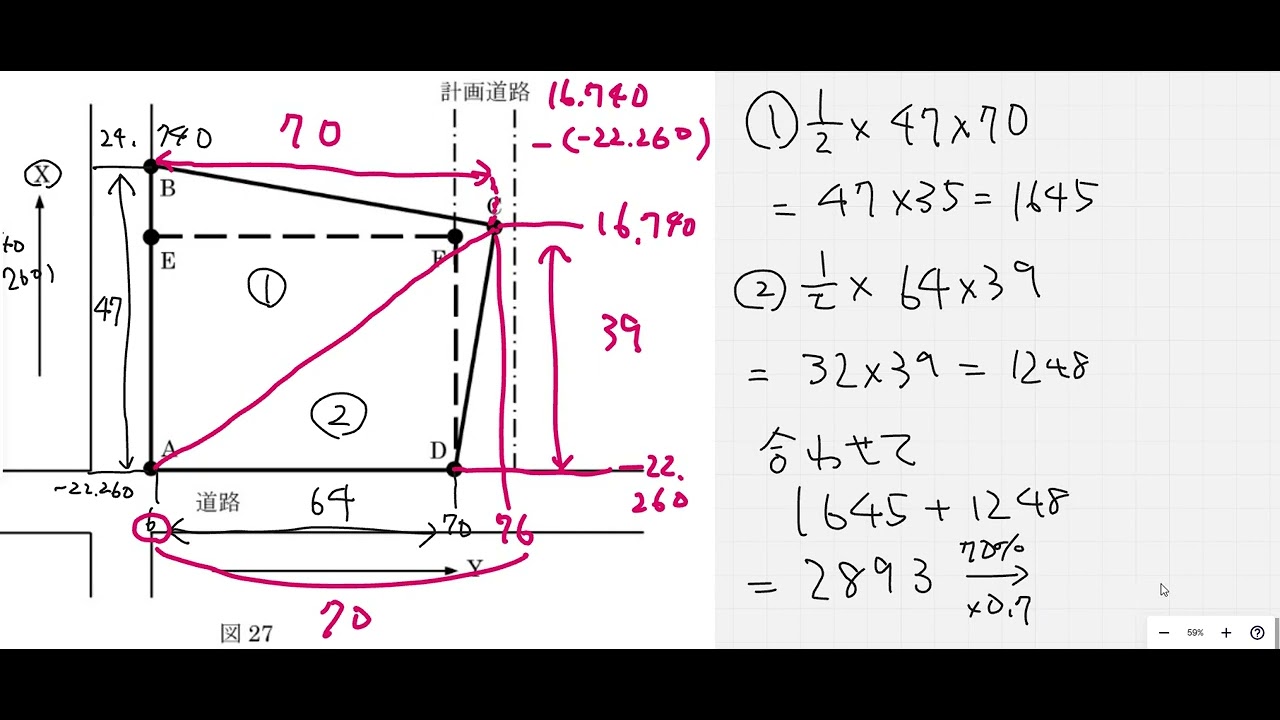 計画道路
16.740
-(-22.260)
24.740
70
X
B
C
16.740
E
F
①
47
39
②
A
D
-22.260
-22.
260
道路
64
6
70
76
Y
70
図 27
260)
① 1/2 × 47×70
= 47×35 = 1645
② 1/2 × 64×39
= 32×39 = 1248
合わせて
1645+1248
= 2893 70% → ×0.7
59%